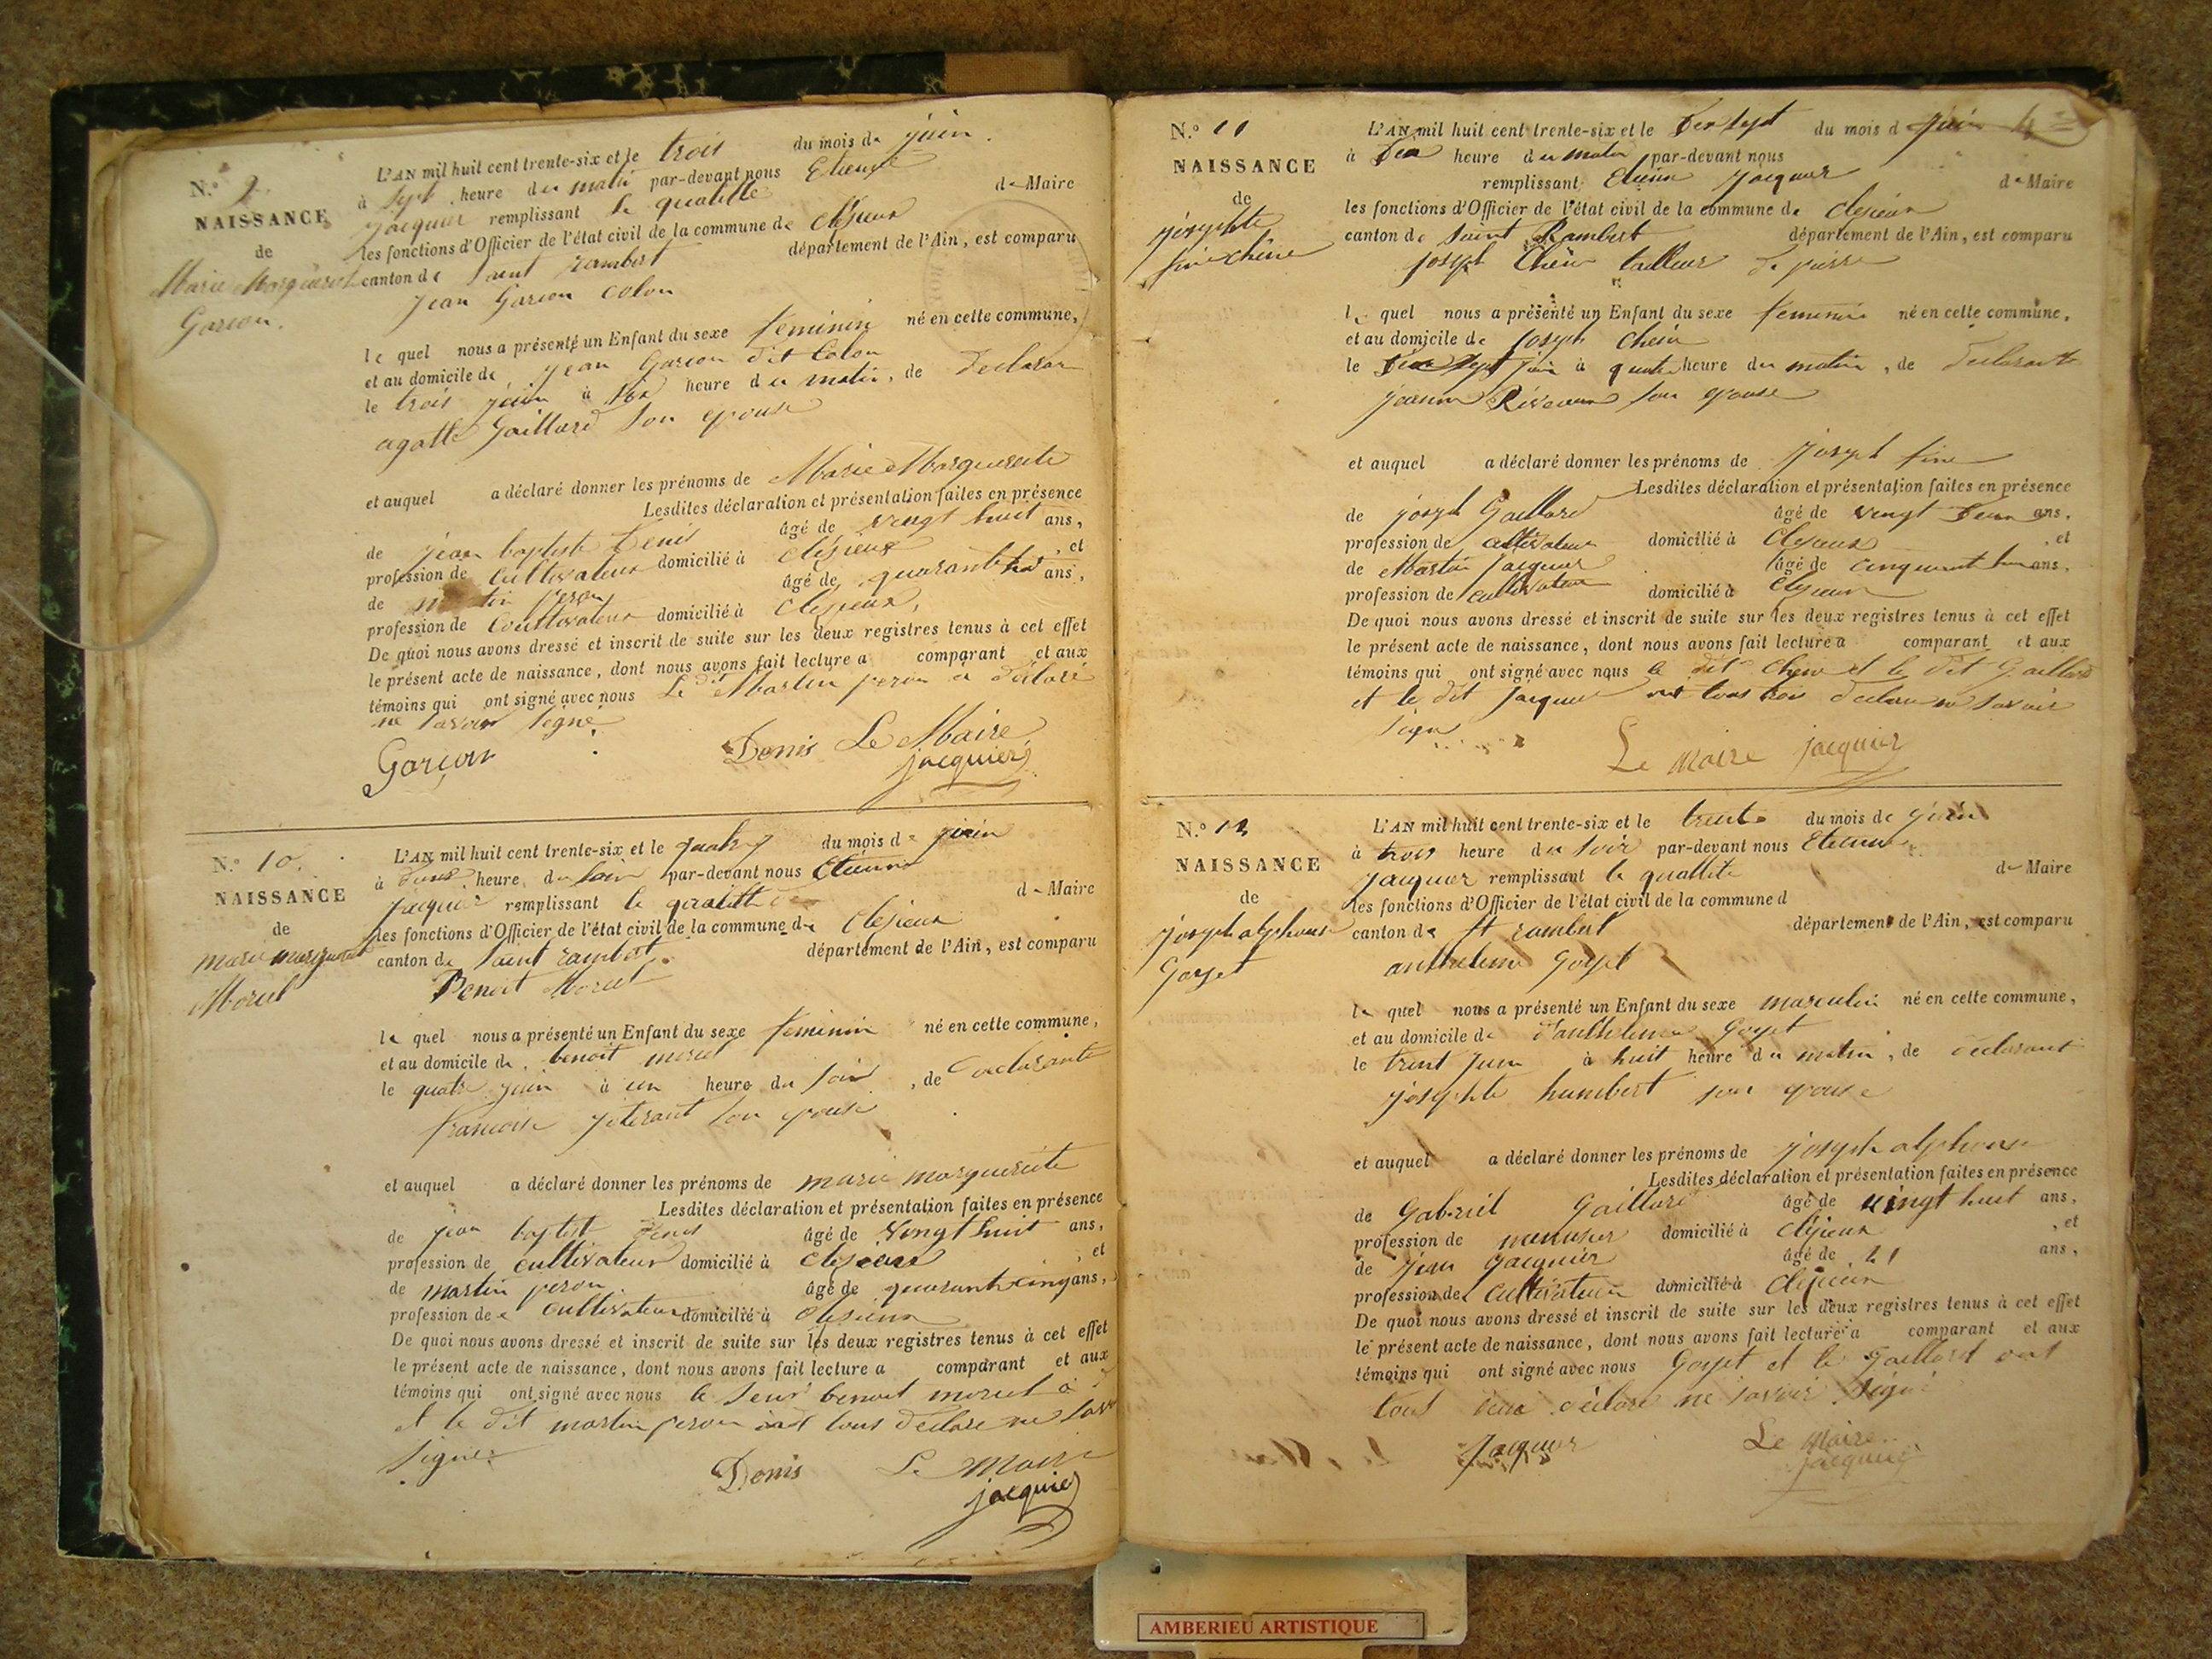 N.º 9
NAISSANCE
de
Marie Marguerite
Garçon.
L'AN mil huit cent trente-six et le trois du mois de juin.
à sept heure du matin par-devant nous Etienne
jacquier remplissant la qualitté de Maire
les fonctions d'Officier de l'état civil de la commune de Clésieux
canton de saint rambert département de l'Ain, est comparu
jean Garcon colon
le quel nous a présenté un Enfant du sexe feminin né en cette commune,
et au domicile de jean Garcon dit Colon
le trois juin à six heure du matin, de declaran
agatte Gaillard son epouse
et auquel a déclaré donner les prénoms de Marie Marguerite
Lesdites déclaration et présentation faites en présence
de jean baptiste Denis âgé de vingt huit ans,
profession de Cultivateur domicilié à Clésieux, et
de peron âgé de quarante ans,
profession de Coultivateur domicilié à Clésieux,
De quoi nous avons dressé et inscrit de suite sur les deux registres tenus à cet effet
le présent acte de naissance, dont nous avons fait lecture a comparant et aux
témoins qui ont signé avec nous Le dit Martin peron a déclaré
ne savoir signé
Garçon Denis Le Maire
jacquier
N.º 10.
NAISSANCE
de
marie marguerite
Morel
L'AN mil huit cent trente-six et le quatre du mois de juin
à deux heure du soir par-devant nous Etienne
jacquier remplissant la qualitté de Maire
les fonctions d'Officier de l'état civil de la commune de Clésieux
canton de saint rambert département de l'Ain, est comparu
Benoit Morel
le quel nous a présenté un Enfant du sexe feminin né en cette commune,
et au domicile de benoit morel
le quatre juin à un heure du soir, de declarante
francoise son epouse
et auquel a déclaré donner les prénoms de marie marguerite
Lesdites déclaration et présentation faites en présence
de jean baptist Denis âgé de vingt huit ans,
profession de cultivateur domicilié à Clésieux, et
de martin peron âgé de quarante cinq ans,
profession de cultivateur domicilié à Clésieux
De quoi nous avons dressé et inscrit de suite sur les deux registres tenus à cet effet
le présent acte de naissance, dont nous avons fait lecture a comparant et aux
témoins qui ont signé avec nous le benoit morel
et le dit martin peron ont tous declare ne
signer
Denis Le Maire
jacquier
N.º 11
NAISSANCE
de
josephte
fine chêne
L'AN mil huit cent trente-six et le Dix sept du mois d juin
à Dix heure du matin par-devant nous
remplissant Etienne jacquier de Maire
les fonctions d'Officier de l'état civil de la commune de clesieux
canton de saint Rambert département de l'Ain, est comparu
joseph Chêne tailleur de pierre
le quel nous a présenté un Enfant du sexe feminin né en cette commune,
et au domicile de joseph Chêne
le Dix sept juin à quatre heure du matin, de declarante
son epouse
et auquel a déclaré donner les prénoms de joseph fine
Lesdites déclaration et présentation faites en présence
de joseph Gaillard âgé de vingt Deux ans,
profession de cultivateur domicilié à Clésieux, et
de Martin jacquier âgé de cinquante ans,
profession de cultivateur domicilié à Clésieux
De quoi nous avons dressé et inscrit de suite sur les deux registres tenus à cet effet
le présent acte de naissance, dont nous avons fait lecture a comparant et aux
témoins qui ont signé avec nous le dit Chêne et le dit Gaillard
et le dit jacquier ont tous trois declare ne savoir
signé
Le maire jacquier
N.º 12
NAISSANCE
de
joseph alphonse
Goyet
L'AN mil huit cent trente-six et le trente du mois de juin
à trois heure du soir par-devant nous Etienne
jacquier remplissant la quallité de Maire
les fonctions d'Officier de l'état civil de la commune d
canton de st rambert département de l'Ain, est comparu
anthelme Goyet
le quel nous a présenté un Enfant du sexe masculin né en cette commune,
et au domicile de d'anthelme Goyet
le trent juin à huit heure du matin, de declarant
josephte humbert son epouse
et auquel a déclaré donner les prénoms de joseph alphonse
Lesdites déclaration et présentation faites en présence
de Gabriel Gaillard âgé de vingt huit ans,
profession de menusier domicilié à Clésieux, et
de jean jacquier âgé de 21 ans,
profession de Cultivateur domicilié à Clésieux
De quoi nous avons dressé et inscrit de suite sur les deux registres tenus à cet effet
le présent acte de naissance, dont nous avons fait lecture a comparant et aux
témoins qui ont signé avec nous Goyet et le Gaillard ont
tous deux déclare ne savoir signé
Jacquier Le Maire
jacquier
AMBERIEU ARTISTIQUE